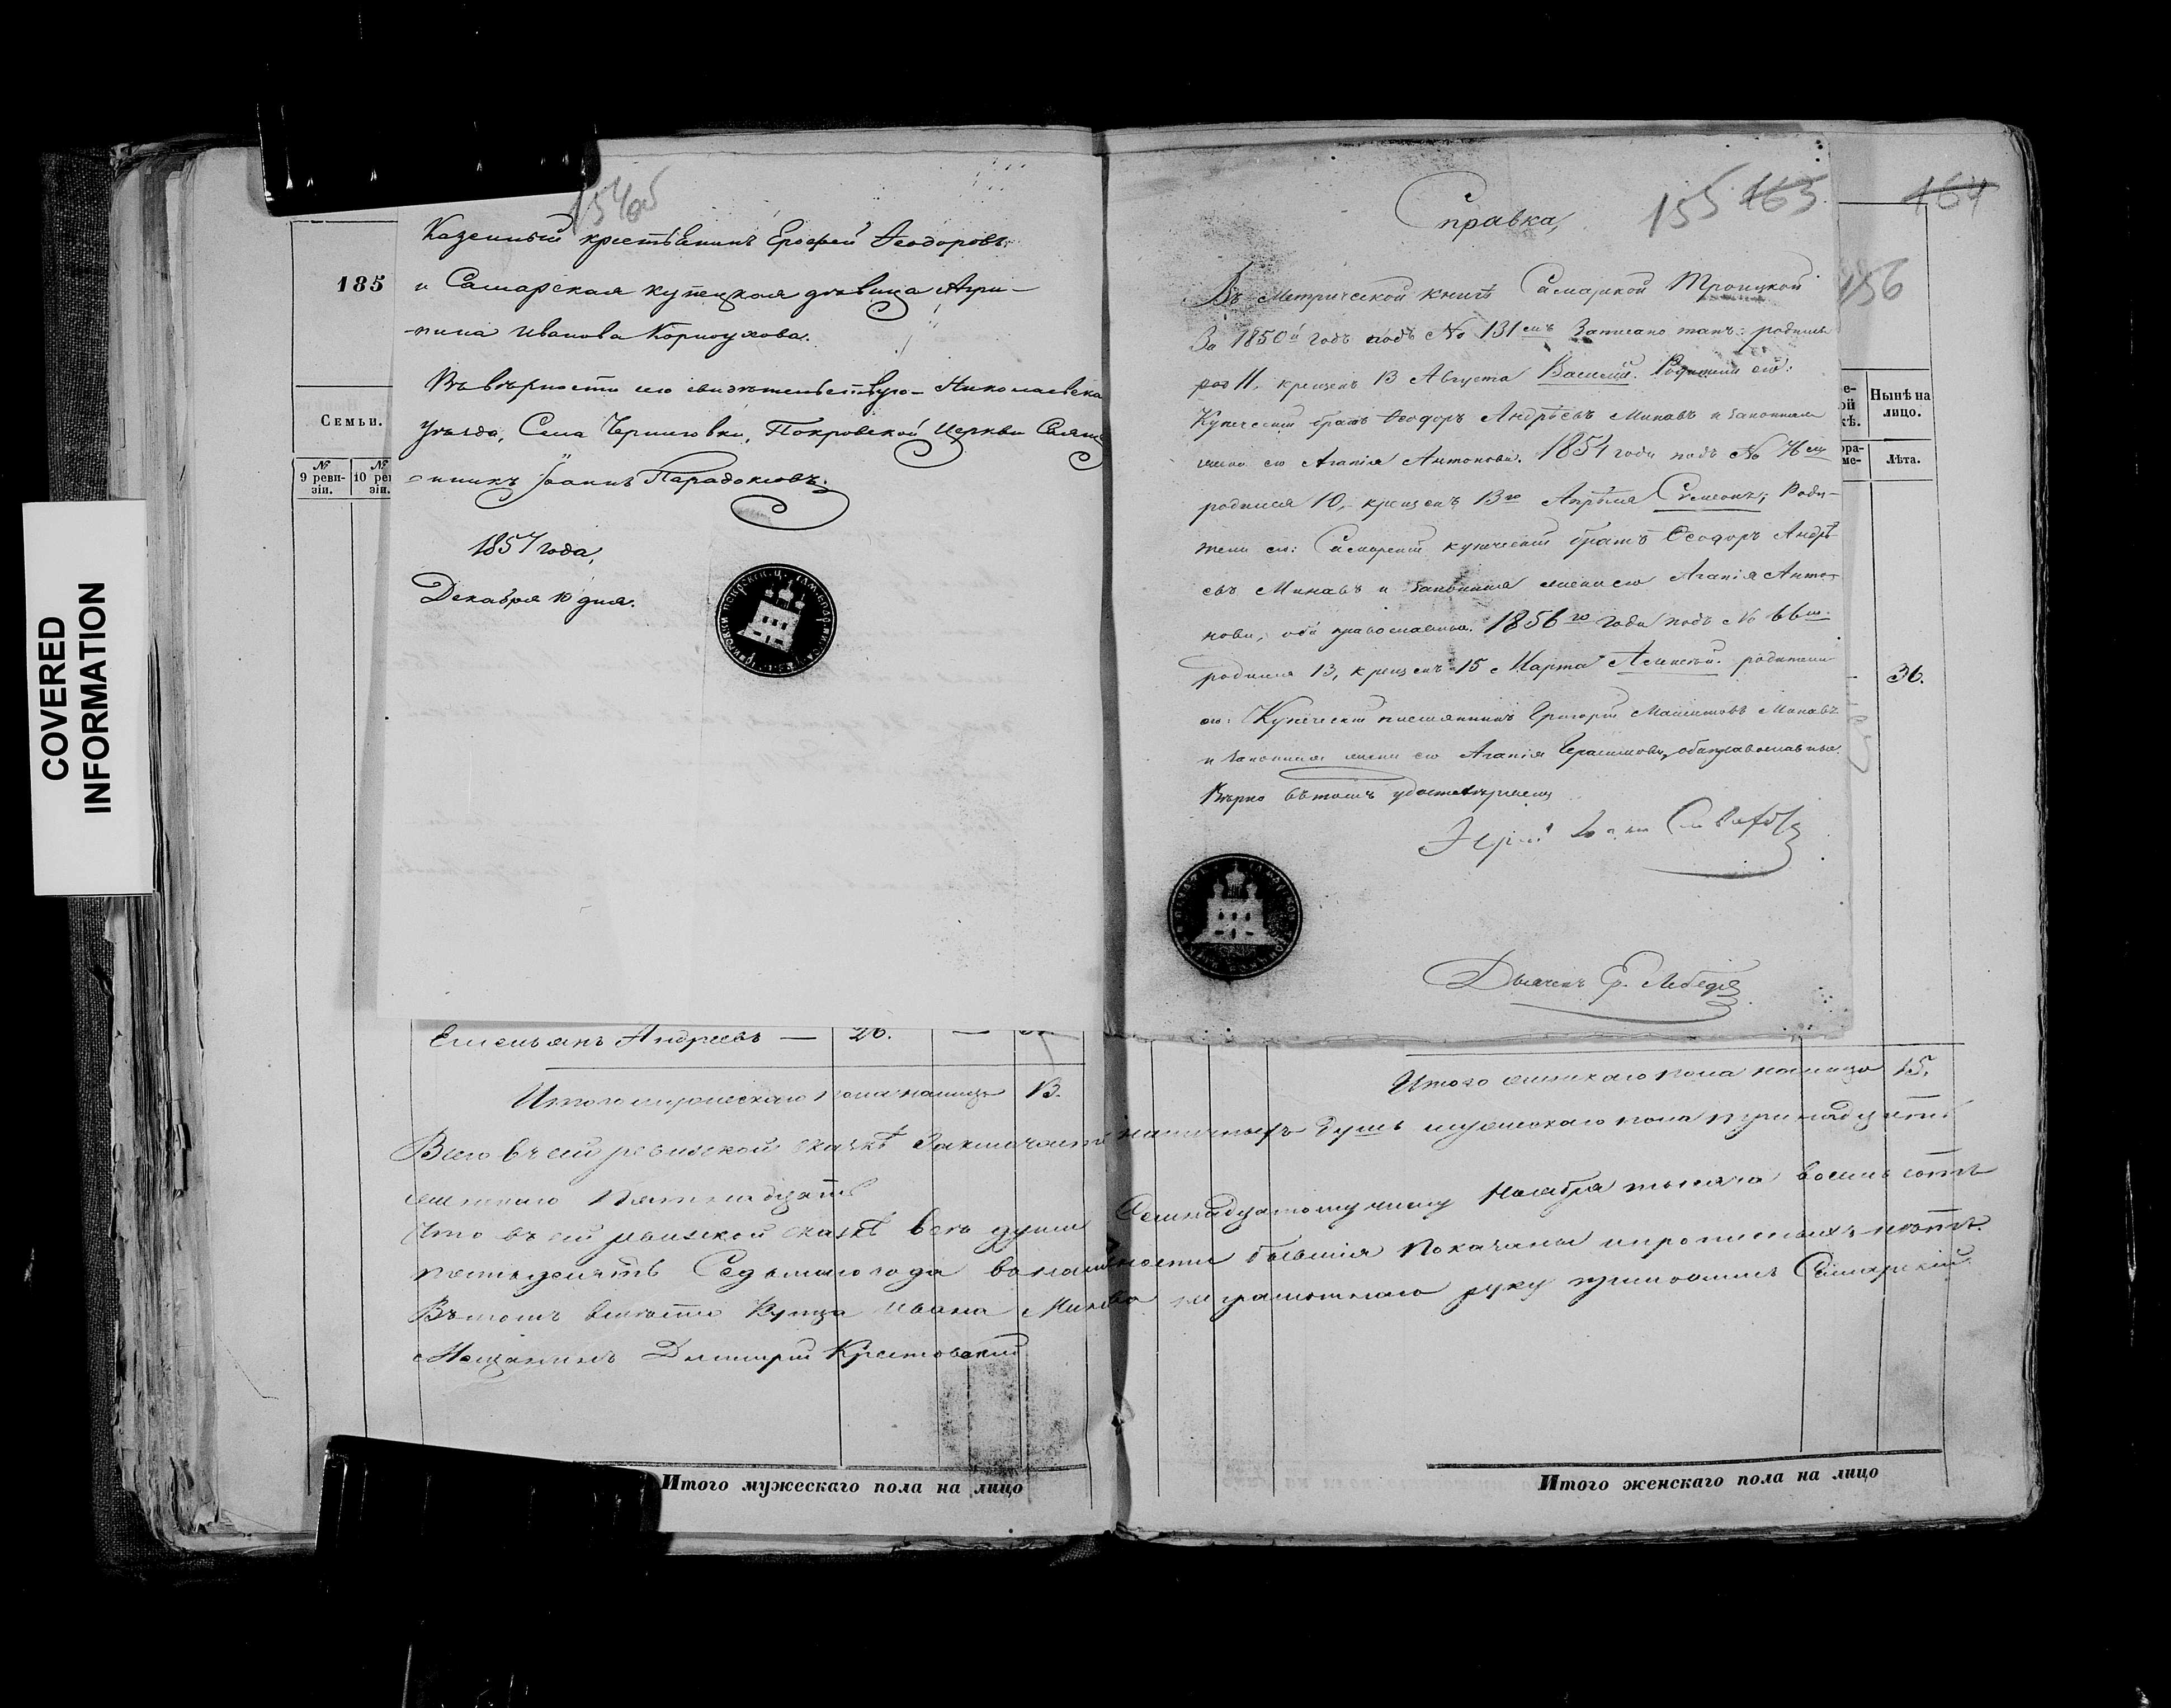 COVERED
INFORMATION
154об
Казенный крестьянинъ Ерофей Ѳеодоровъ
и Самарская купецкая дѣвица Агри-
-пина Иванова Корноухова.
Въ вѣрности сего свидѣтельствую Николаевска
уѣзда, Села Черниговки, Покровской Церкви Свящ
-нникъ Іоаннъ Парадоксовъ.
1857 года,
Декабря 10 дня.
185
Семьи.
№ 9 реви-зіи.
№ 10 рев зіи.
Емельянъ Андреевъ — 26. —
Итого мужескаго пола налицо 13.
155 163
164
156
Справка,
Въ Метрической книгѣ Самарской Троицкой
За 1850й годъ подъ № 131емъ Записано такъ: родился
11, крещенъ 13 Августа Василій. Родители его:
Купеческій братъ Ѳеодоръ Андрѣевъ Минаевъ и законная
жена его Агапія Антонова. 1854 года подъ №
родился 10, крещенъ 13го Апрѣля Симеонъ; Роди-
тели его: Самарскій купеческій братъ Ѳеодоръ Андрѣ-
евъ Минаевъ и законная жена его Агапія Анто-
нова, оба православные. 1856го года подъ №
родился 13, крещенъ 15 Марта Алексѣй. родители
его: Купеческій племянникъ Григорій Минаевъ
и законная жена его Агапія Герасимова, оба православные.
Вѣрно въ томъ удостовѣряемъ
Іерей
Дьячекъ Лебедев
е-ой кѣ.
Нынѣ на лицо.
ра-ме-
Лѣта.
36.
Итого женскаго пола налицо 15.
Всего въ сей ревизской сказкѣ Заключается наличныхъ душъ мужескаго пола тринадцать
женскаго Пятнадцать
Что въ сей ревизской сказкѣ всѣ души Семнадцатому числу Ноября тысяча восемь сотъ
пятьдесятъ Седьмаго года въ наличности бывшія показаны и прописныхъ нѣтъ.
Въ томъ вмѣсто Купца Ивана Минаева неграмотнаго руку приложилъ Самарскій
Мещанинъ Дмитрій Крестовскій
Итого мужескаго пола на лицо
Итого женскаго пола на лицо